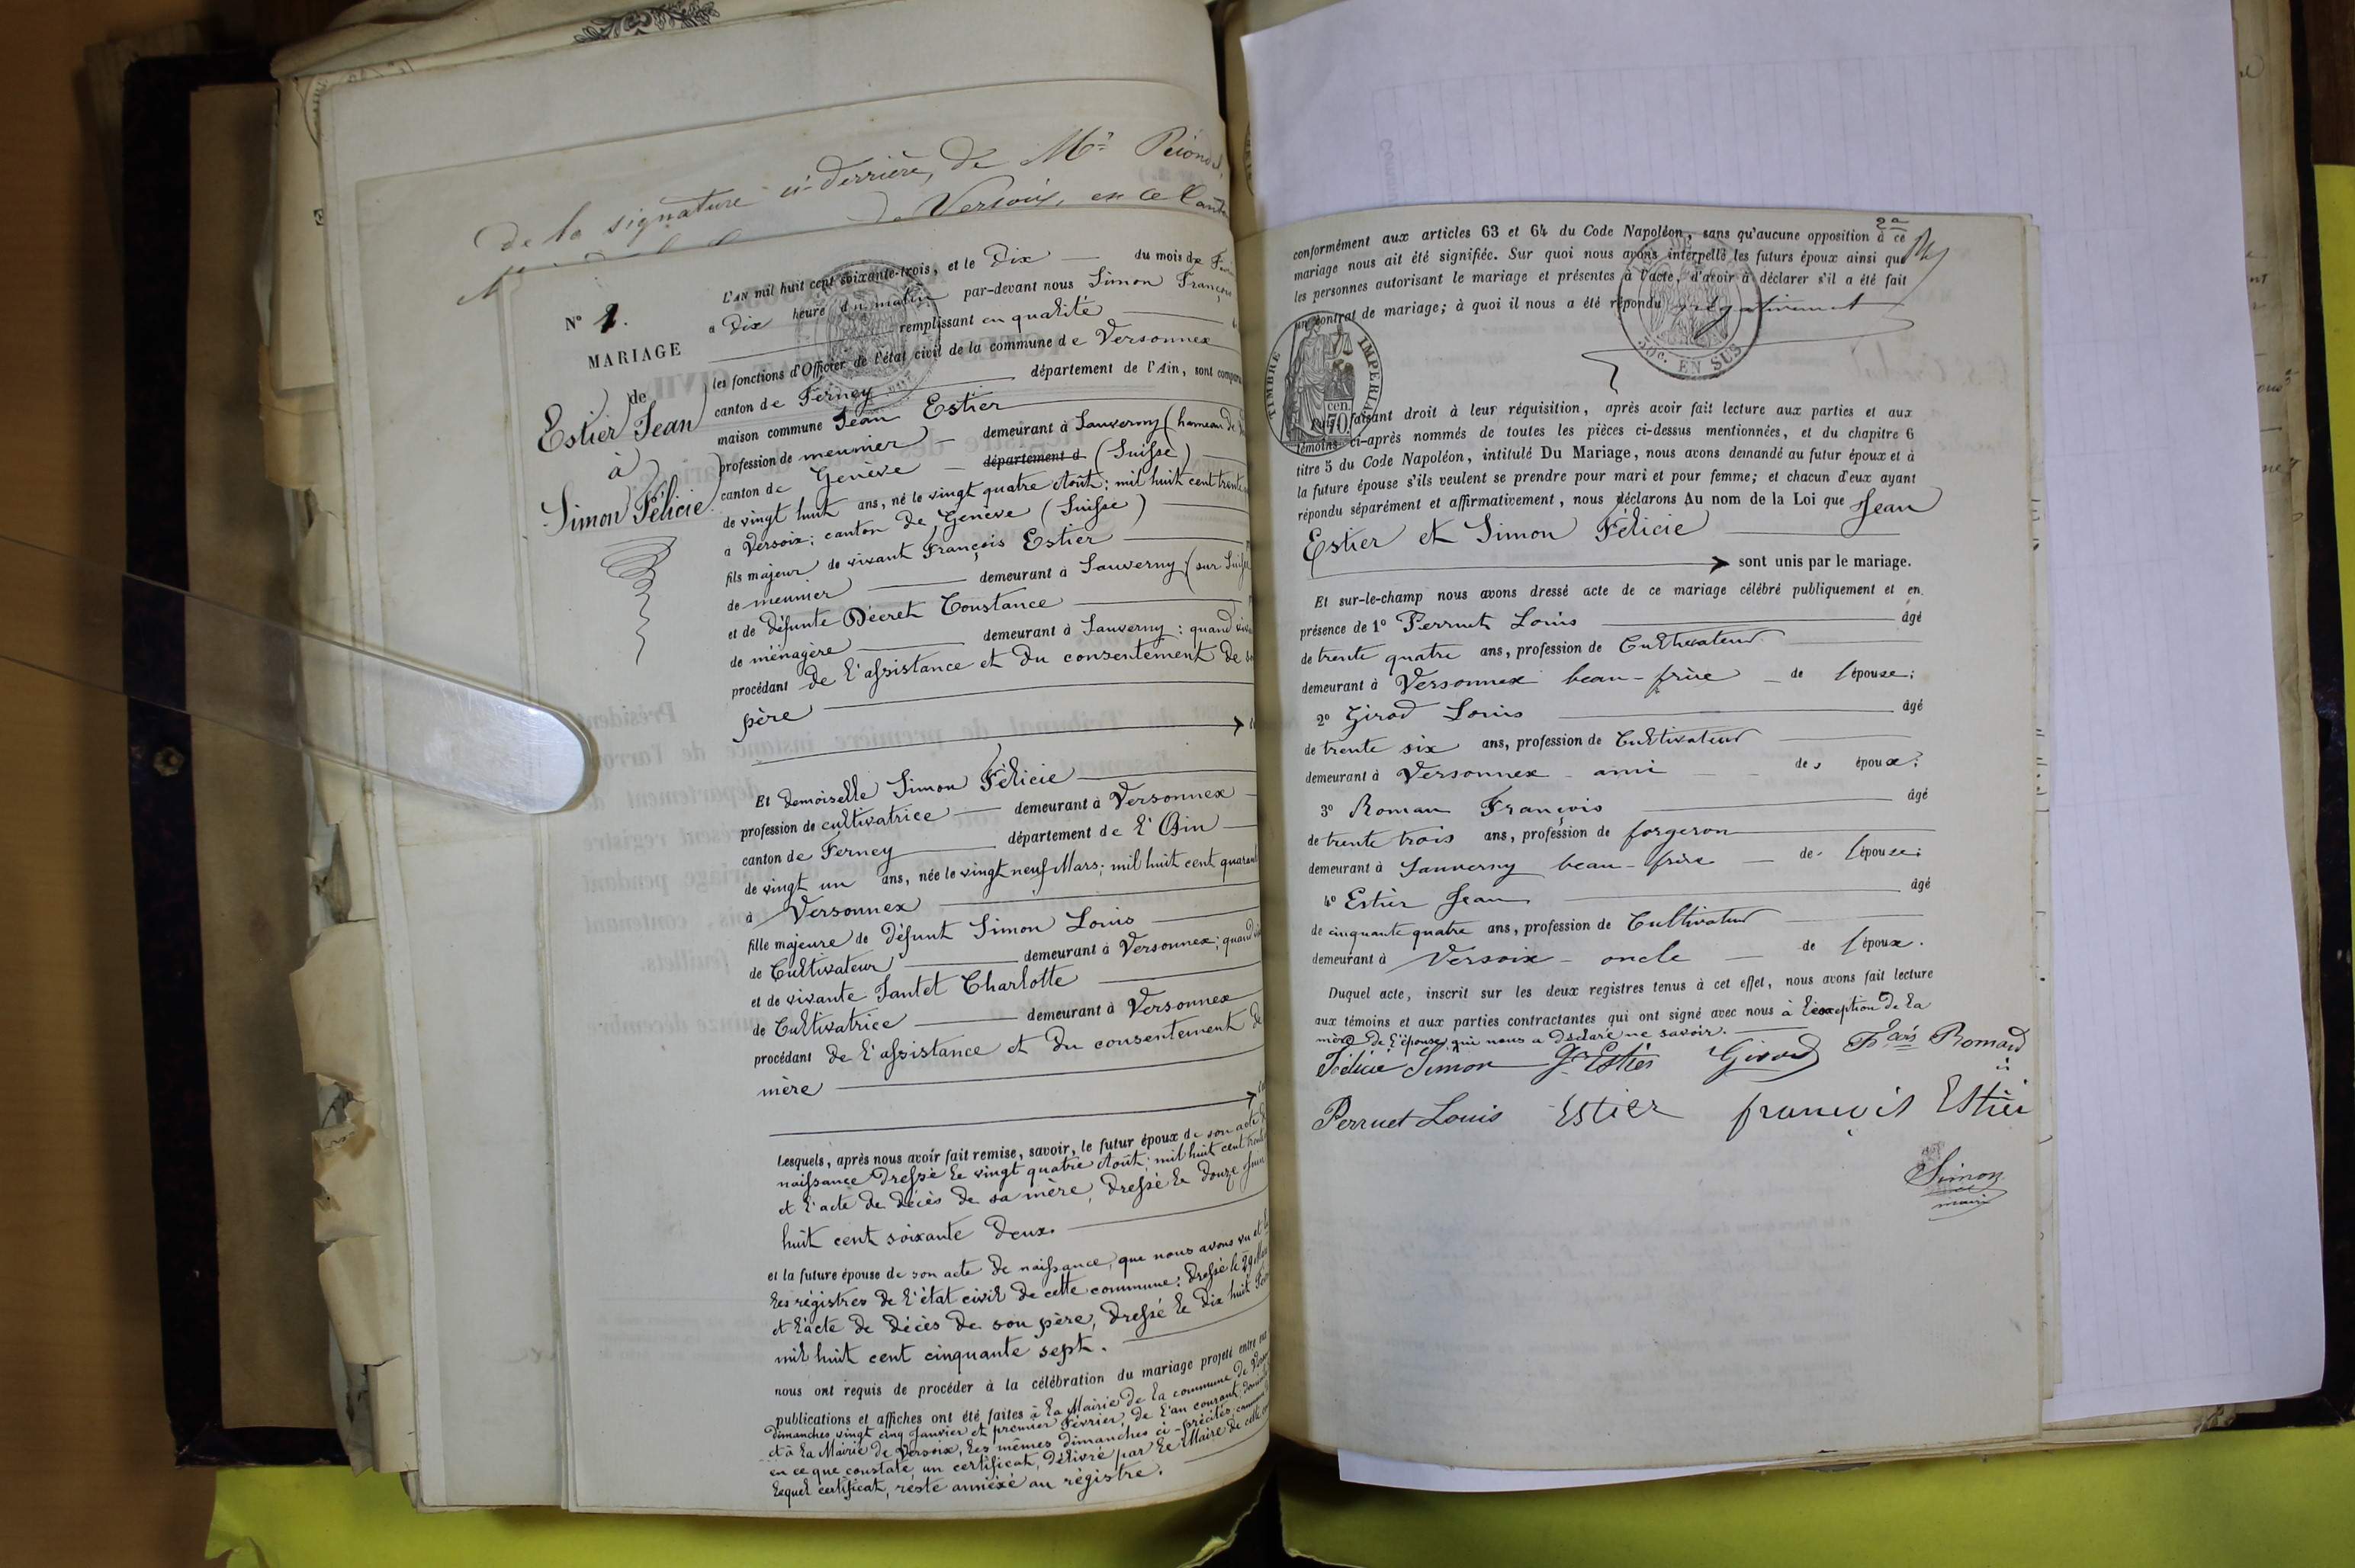 De la signature ci-derrière, de Mr
Versoix, en ce
N° 1.
MARIAGE
de
Estier Jean
à
Simon Félicie
L'AN mil huit cent soixante-trois, et le Dix du mois de
à Dix heure du matin par-devant nous Simon François
remplissant en qualité
les fonctions d'Officier de l'état civil de la commune de Versonnex
canton de Ferney département de l'Ain, sont
maison commune Jean Estier
profession de meunier demeurant à Sauverny (hameau de
canton de Genève département d (Suisse)
de vingt huit ans, né le vingt quatre Août; mil huit cent trente
à Versoix; canton de Genève (Suisse)
fils majeur de vivant François Estier
de meunier demeurant à Sauverny (sur
et de défunte Décret Constance
de ménagère demeurant à Sauverny: quand
procédant de l'assistance et du consentement de
père
Et demoiselle Simon Félicie
profession de cultivatrice demeurant à Versonnex
canton de Ferney département de l'Ain
de vingt un ans, née le vingt neuf Mars; mil huit cent
à Versonnex
fille majeure de défunt Simon Louis
de Cultivateur demeurant à Versonnex; quand
et de vivante Tantet Charlotte
de Cultivatrice demeurant à Versonnex
procédant de l'assistance et du consentement de
mère
Lesquels, après nous avoir fait remise, savoir, le futur époux de son acte
naissance Dressé le vingt quatre Août; mil huit cent
et l'acte de décès de sa mère, Dressé le Douze
huit cent soixante Deux.
et la future épouse de son acte de naissance, que nous avons vu et
les régistres de l'état civil de cette commune: Dressé le 29
et l'acte de décès de son père, Dressé le Dix huit
mil huit cent cinquante sept.
nous ont requis de procéder à la célébration du mariage projeté entre
publications et affiches ont été faites à la Mairie de la commune de
dimanches, vingt cinq Janvier et premier Février, de l'an courant,
et à la Mairie de Versoix, les mêmes dimanches ci-précités,
en ce que constate, un certificat, délivré par le Maire de cette
lequel certificat, reste annéxé au régistre.
2e
conformément aux articles 63 et 64 du Code Napoléon, sans qu'aucune opposition à ce
mariage nous ait été signifiée. Sur quoi nous avons interpellé les futurs époux ainsi que
les personnes autorisant le mariage et présentes à l'acte, d'avoir à déclarer s'il a été fait
un contrat de mariage; à quoi il nous a été répondu négativement
50c. EN SUS
TIMBRE IMPERIAL
70 cen.
faisant droit à leur réquisition, après avoir fait lecture aux parties et aux
témoins ci-après nommés de toutes les pièces ci-dessus mentionnées, et du chapitre 6
titre 5 du Code Napoléon, intitulé Du Mariage, nous avons demandé au futur époux et à
la future épouse s'ils veulent se prendre pour mari et pour femme; et chacun d'eux ayant
répondu séparément et affirmativement, nous déclarons Au nom de la Loi que Jean
Estier et Simon Félicie
sont unis par le mariage.
Et sur-le-champ nous avons dressé acte de ce mariage célébré publiquement et en
présence de 1° Perruet Louis âgé
de trente quatre ans, profession de Cultivateur
demeurant à Versonnex beau-frère de l'épouse;
2° Girod Louis âgé
de trente six ans, profession de Cultivateur
demeurant à Versonnex ami des époux;
3° Roman François âgé
de trente trois ans, profession de forgeron
demeurant à Sauverny beau-frère de l'épouse;
4° Estier Jean âgé
de cinquante quatre ans, profession de Cultivateur
demeurant à Versoix oncle de l'époux.
Duquel acte, inscrit sur les deux registres tenus à cet effet, nous avons fait lecture
aux témoins et aux parties contractantes qui ont signé avec nous à l'exception de la
mère de l'épouse, qui nous a déclaré ne savoir.
Félicie Simon Jn Estier Girod Fçois Romand
Perruet Louis Estier françois Estier
Simon
maire